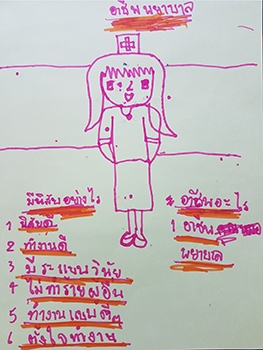 อาชีพพยาบาล
มีนิสัยอย่างไร
1 นิสัยดี
2 ทำงานดี
3 มีระเบบวินัย
4 ไม่ทำร้ายผู้อื่น
5 ทำงานเก่งๆ
6 ตั้งใจทำงาน
อาชีพอะไร
1 อาชีพ
พยาบาล